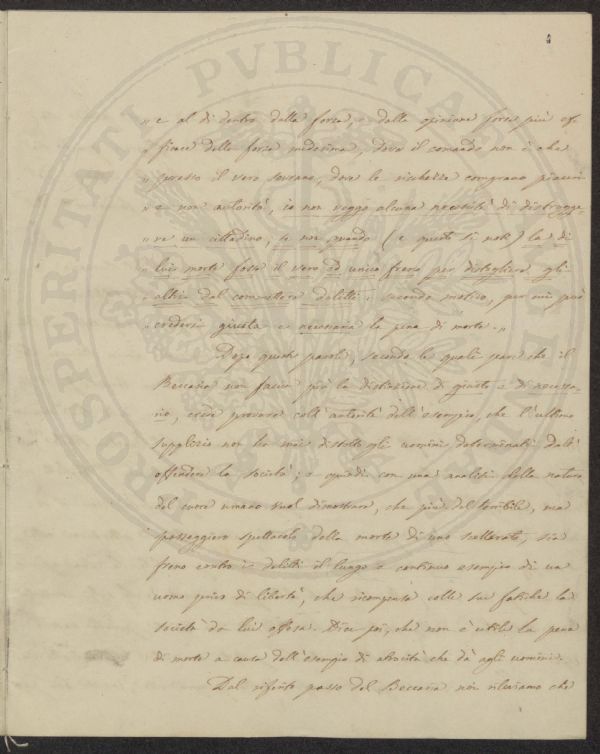 „ e al di dentro dalla forza, e dalla opinione forse più ef-
„ ficace della forza medesima, dove il comando non è che
„ presso il vero sovrano, dove le ricchezze comprano piaceri
„ e non autorità, io non veggo alcuna necessità di distrugge-
„ re un cittadino, se non quando (e questo si noti) la di
„ lui morte fosse il vero ed unico freno per distogliere gli
„ altri dal commettere delitti, secondo motivo, per cui può
„ credersi giusta e necessaria la pena di morte. „
Dopo queste parole, secondo le quali pare che il
Beccaria non faccia più la distinzione di giusto e di necessa-
rio, crede provare coll'autorità dell'esempio, che l'ultimo
supplizio non ha mai distolto gli uomini determinati dall'
offendere la società; e quindi con una analisi della natura
del cuore umano vuol dimostrare, che più del terribile, ma
passeggiero spettacolo della morte di uno scellerato, sia
freno contro i delitti il lungo e continuo esempio di un
uomo privo di libertà, che ricompensa colle sue fatiche la
società da lui offesa. Dice poi, che non è utile la pena
di morte a causa dell'esempio di atrocità che dà agli uomini.
Dal riferito passo del Beccaria non rileviamo che
PROSPERITATI PVBLICAE